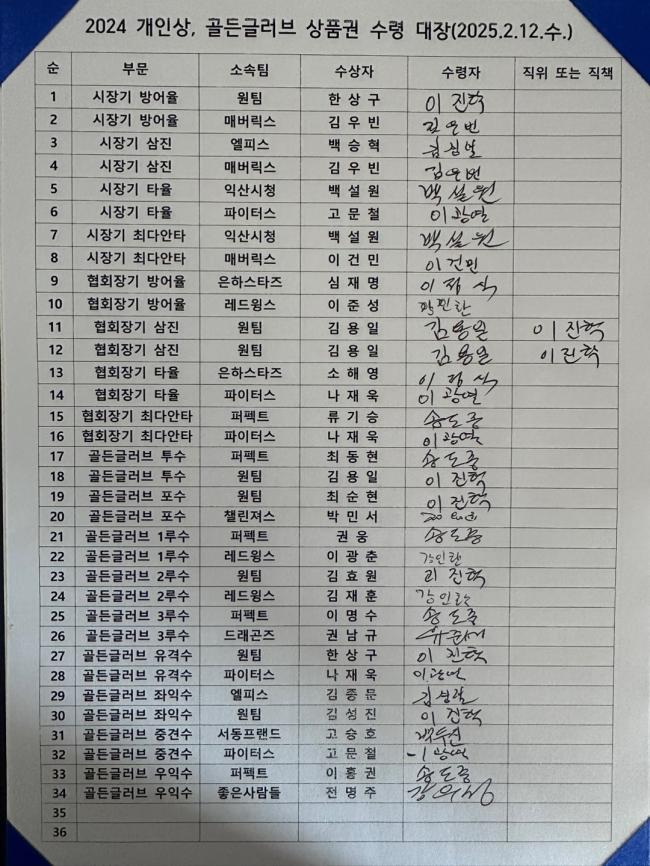 2024 개인상, 골든글러브 상품권 수령 대장(2025.2.12.수.)
순 부문 소속팀 수상자 수령자 직위 또는 직책
1 시장기 방어율 원팀 한상구 이진혁
2 시장기 방어율 매버릭스 김우빈 김우빈
3 시장기 삼진 엘피스 백승혁
4 시장기 삼진 매버릭스 김우빈 김우빈
5 시장기 타율 익산시청 백설원 백설원
6 시장기 타율 파이터스 고문철 이광열
7 시장기 최다안타 익산시청 백설원 백설원
8 시장기 최다안타 매버릭스 이건민 이건민
9 협회장기 방어율 은하스타즈 심재명
10 협회장기 방어율 레드윙스 이준성
11 협회장기 삼진 원팀 김용일 김용일 이진혁
12 협회장기 삼진 원팀 김용일 김용일 이진혁
13 협회장기 타율 은하스타즈 소해영
14 협회장기 타율 파이터스 나재욱 이광열
15 협회장기 최다안타 퍼펙트 류기승 송도중
16 협회장기 최다안타 파이터스 나재욱 이광열
17 골든글러브 투수 퍼펙트 최동현 송도중
18 골든글러브 투수 원팀 김용일 이진혁
19 골든글러브 포수 원팀 최순현 이진혁
20 골든글러브 포수 챌린져스 박민서
21 골든글러브 1루수 퍼펙트 권웅 송도중
22 골든글러브 1루수 레드윙스 이광춘
23 골든글러브 2루수 원팀 김효원 이진혁
24 골든글러브 2루수 레드윙스 김재훈
25 골든글러브 3루수 퍼펙트 이명수 송도중
26 골든글러브 3루수 드래곤즈 권남규
27 골든글러브 유격수 원팀 한상구 이진혁
28 골든글러브 유격수 파이터스 나재욱
29 골든글러브 좌익수 엘피스 김종문
30 골든글러브 좌익수 원팀 김성진 이진혁
31 골든글러브 중견수 서동프랜드 고승호
32 골든글러브 중견수 파이터스 고문철
33 골든글러브 우익수 퍼펙트 이홍권 송도중
34 골든글러브 우익수 좋은사람들 전명주
35
36